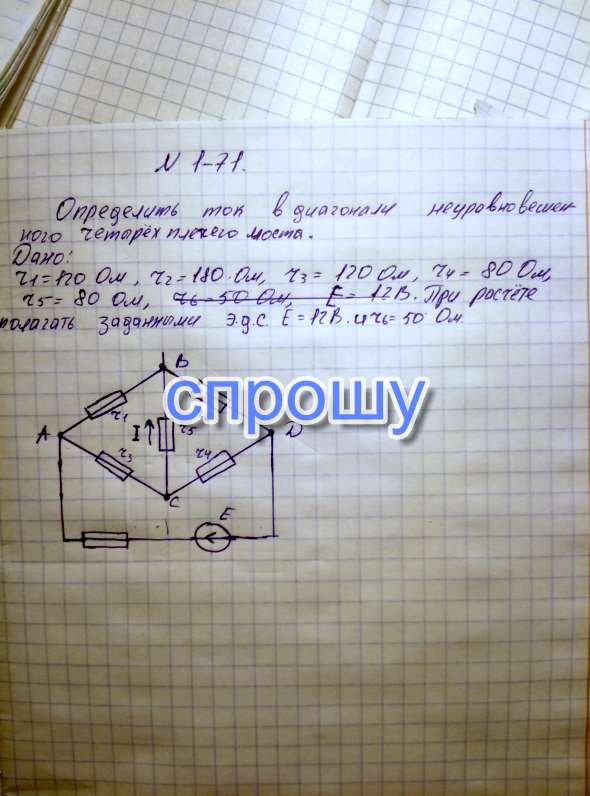 N 1-71.
Определить ток в диагонали неуравновешен
ного четырёхплечего моста.
Дано:
r1=120 Ом, r2=180 Ом, r3=120 Ом, r4=80 Ом,
r5=80 Ом, r6=50 Ом, E=12В. При расчёте
полагать заданными э.д.с. E=12В. и r6=50 Ом
B
спрошу
r1
A
I
r5
D
r3
r4
C
E